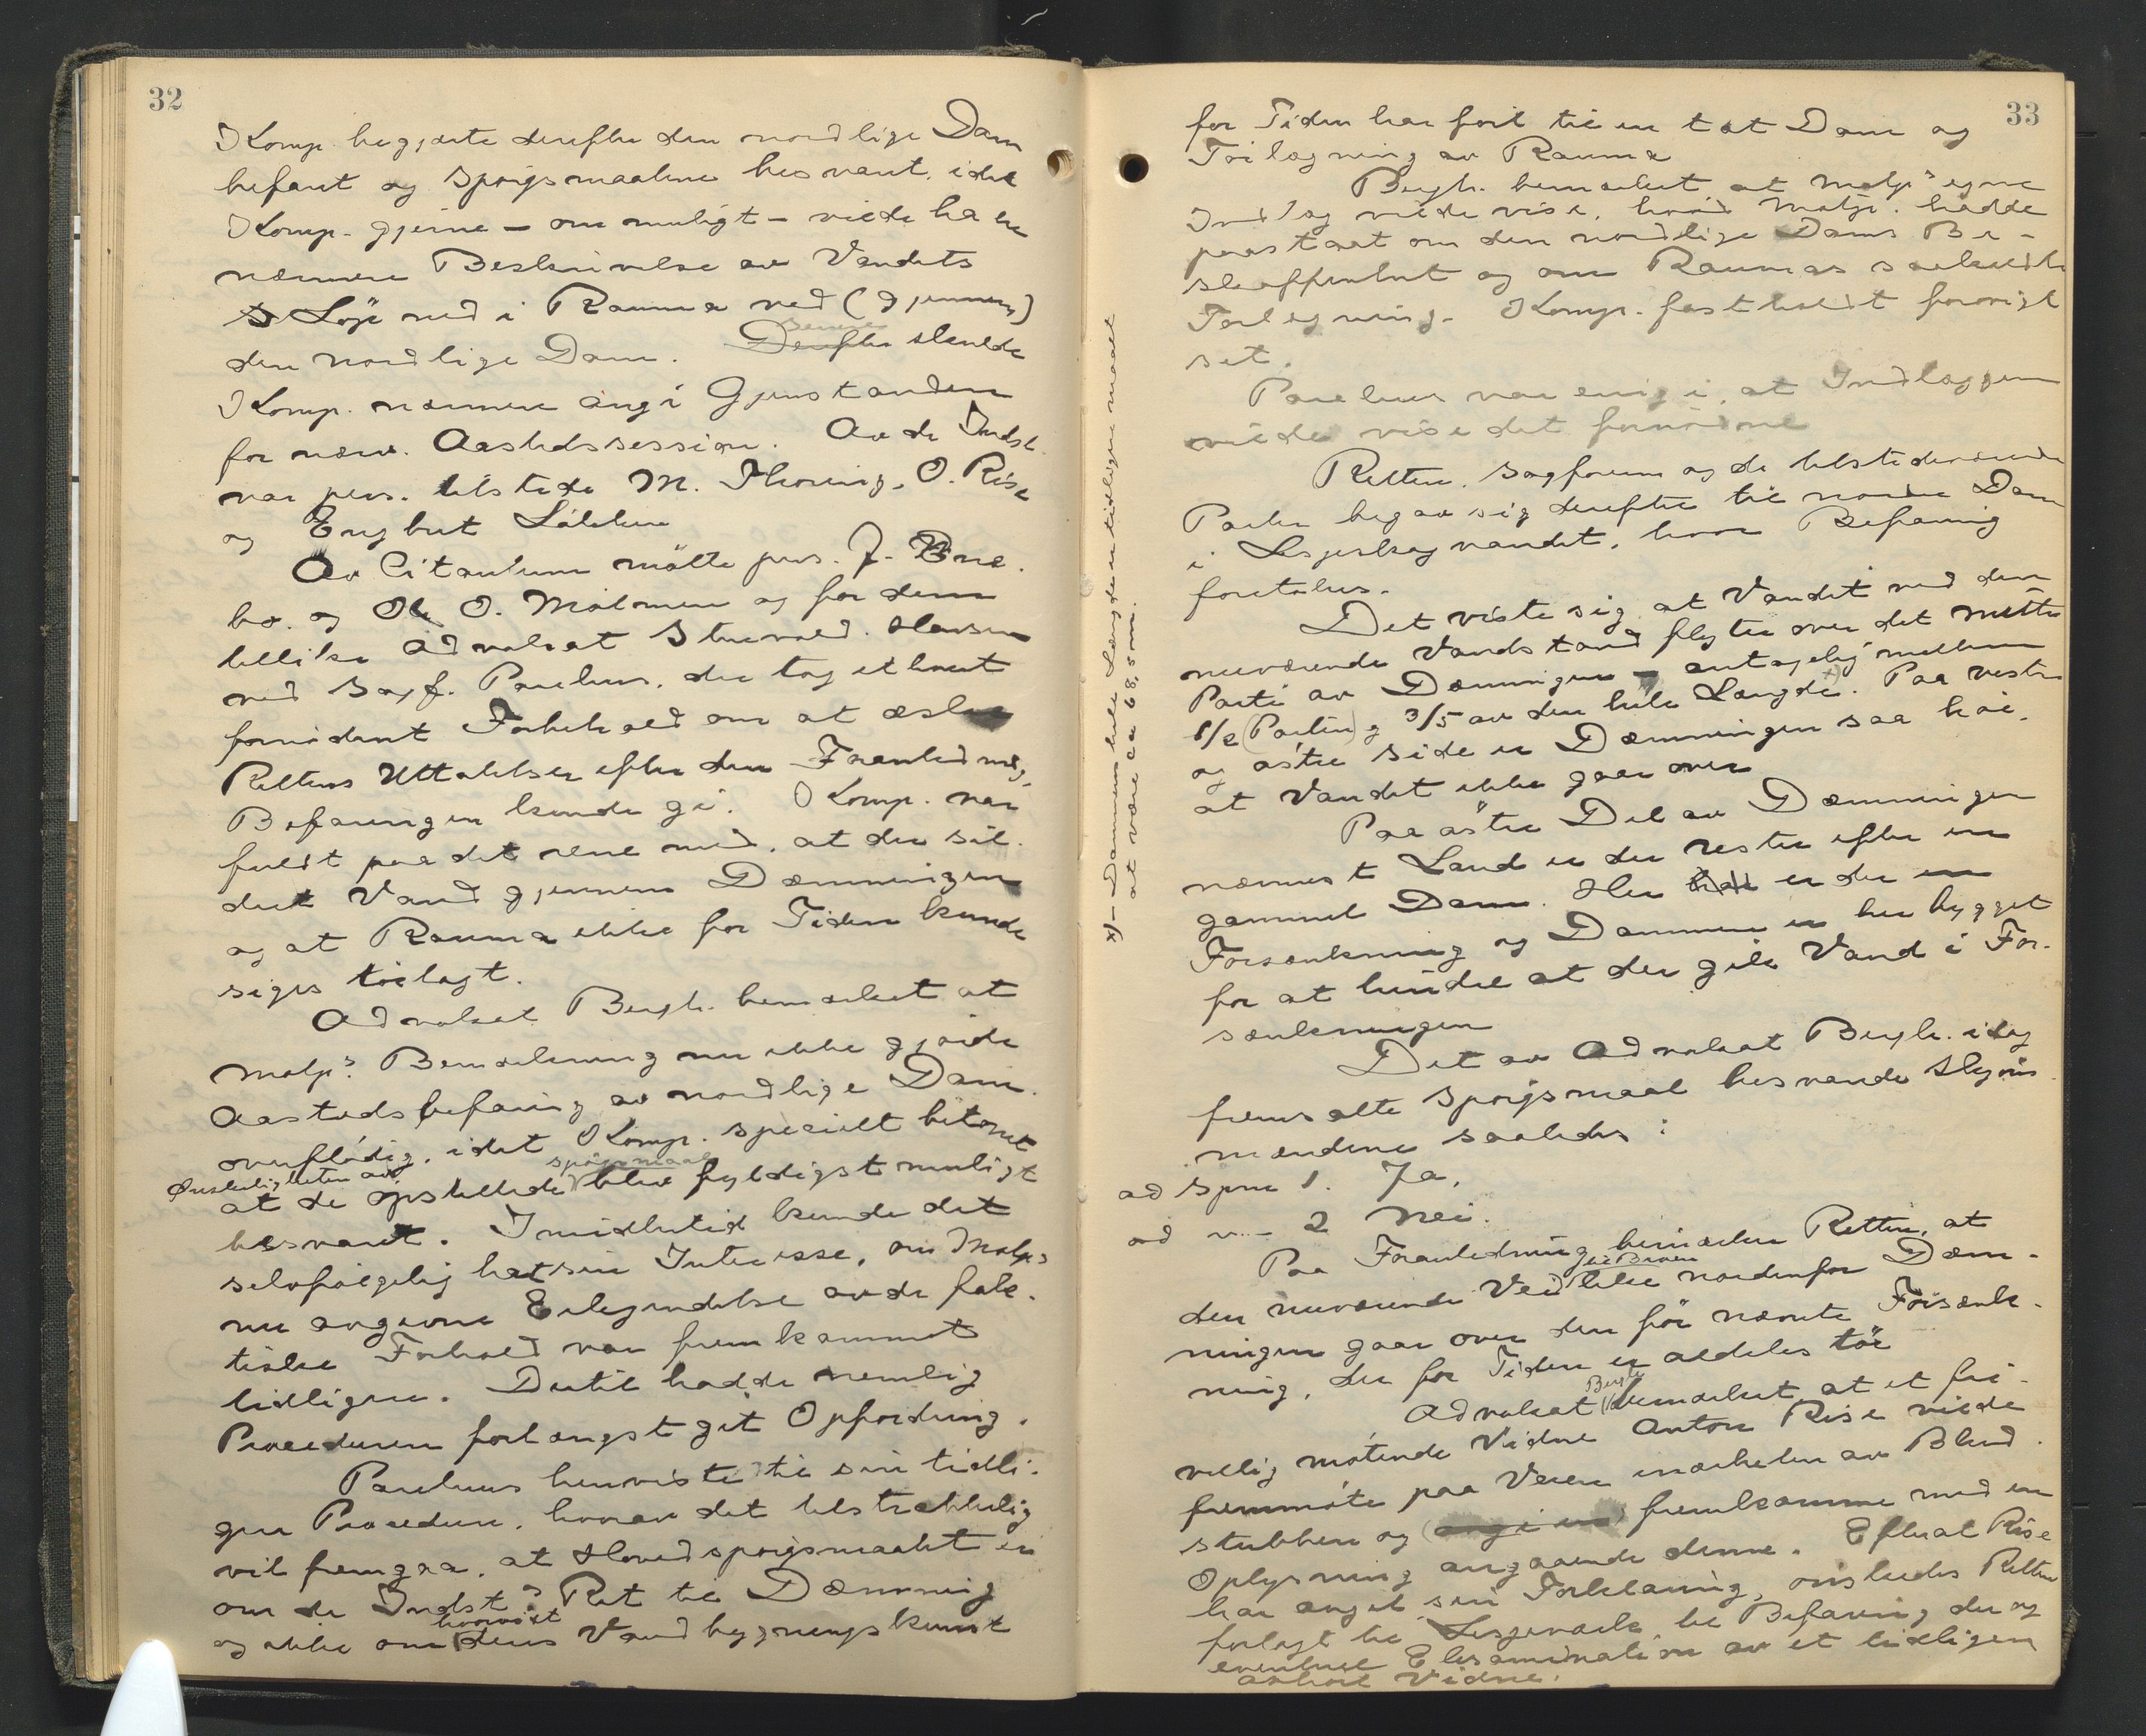 32
Komp. begjærte derefter den nordlige Dam
befaret og Spørgsmaalene besvaret, idet
Komp. gjerne – om muligt – vilde ha en
nærmere Beskrivelse av Vandets
Løp ned i Rauma ved (gjennem)
den nordlige Dam. Senere skulde
Komp. nærmere angi Gjenstanden
for nærv. Aastedssession. Av de Indst.
var pers. tilstede M. Thoring, O. Rise
og Engbret
Av Citanterne møtte pers. J.
bø. og Ole O. Mølmen og for dem
tillike Advokat Stuevold-Hansen
ved Sagf. Paulsen, der tog ethvert
fornødent Forbehold om at æske
Rettens Uttalelser efter den Foranledning,
Befaringen kunde gi. Komp. var
fuldt paa det rene med, at der sil-
dret Vand gjennem Dæmningen
og at Rauma ikke for Tiden kunde
siges tørlagt.
Advokat Bergh. bemærket at
Motp.s Bemerkning nu ikke gjorde
Aastedsbefaring av nordlige Dam
overflødig, idet Komp. specielt betonet
Ønskeligheten av
at de opstillede spørgsmaal blev fyldigst muligt
besvaret. Imidlertid kunde det
selvfølgelig hat sin Interesse, om Motp.s
nu avgivne Erkjendelse av de fak-
tiske Forhold var fremkommet
tidligere. Dertil hadde nemlig
Proceduren forlængst git Opfordring.
Paulsen henviste til sin tidli-
gere Procedure, hvorav det tilstrækkelig
vil fremgaa, at Hovedspørgsmaalet er
om de Indst.s Ret til Dæmning
og ikke om hvorvidt deres Vandbygningskunst
33
for Tiden har ført til en tæt Dam og
Tørlægning av Rauma
Bergh. bemærket, at Motp.s egne
Indlæg vilde vise, hvad Motp. hadde
paastaat om den nordlige Dams Be-
skaffenhet og om Raumas saakaldte
Tørlægning. Komp. fastholdt forøvrigt
sit.
Paulsen var enig i, at Indlæggene
vilde vise det fornødne
Retten, Sagførerne og de tilstedeværende
Parter begav sig derefter til nordre Dam
i Lesjeskogvandet, hvor Befaring
foretokes.
Det viste sig, at Vandet med den
nuværende Vandstand flyter over det midtre
Parti av Dæmningen – antagelig mellem
1/2 (Parten) og 3/5 av den hele Længde x). Paa vestre
og østre Side er Dæmningen saa høi,
at Vandet ikke gaar over
Paa østre Del av Dæmningen
nærmest Land er der rester efter en
gammel Dam. Her er der en
Forsænkning og Dammen er her bygget
for at hindre at der gik Vand i For-
sænkningen
Det av Advokat Bergh. idag
fremsatte Spørgsmaal besvarede Skjøns-
mændene saaledes:
ad Spm 1. Ja,
ad – " – 2 Nei.
Paa Foranledning bemærker Retten, at
den nuværende Vei til Broen like nordenfor Dæm-
ningen gaar over den før nævnte Forsænk-
ning, der for Tiden er aldeles tør
Advokat Bergh bemærket, at et fri-
villig møtende Vidne Anton Rise vilde
fremmøte paa Veien i nærheten av Blind-
stubben og fremkomme med en
Oplysning angaaende denne. Efterat Rise
har avgit sin Forklaring, ønskedes Retten
forlagt til Lesjeværk til Befaring der og
eventuel Eksamination av et tidligere
avhørt Vidne.
x) – Dammens hele Længde er tidligere maalt
at være ca 68,5 m.